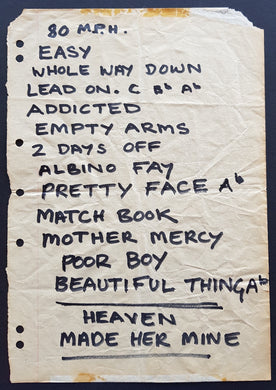 80 M.P.H.
EASY
WHOLE WAY DOWN
LEAD ON. C Bb Ab
ADDICTED
EMPTY ARMS
2 DAYS OFF
ALBINO FAY
PRETTY FACE Ab
MATCH BOOK
MOTHER MERCY
POOR BOY
BEAUTIFUL THING Ab
HEAVEN
MADE HER MINE